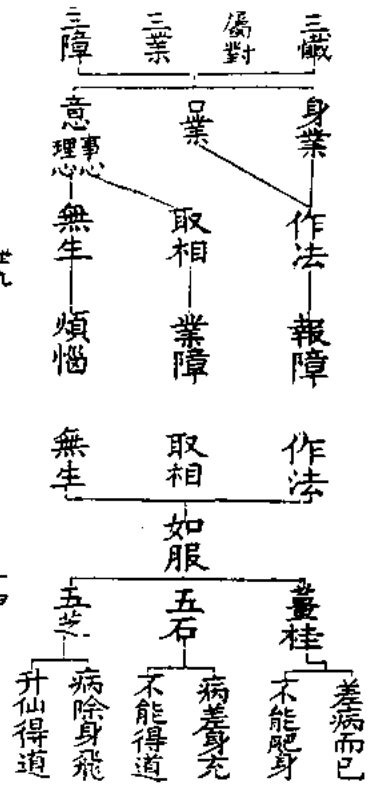 三懺
屬對
三業
三障
身業
口業
意
事心
理心
作法
取相
無生
報障
業障
煩惱
作法
取相
無生
如服
薑桂
五石
五芝
差病而已
不能肥身
病差身充
不能得道
病除身飛
升仙得道